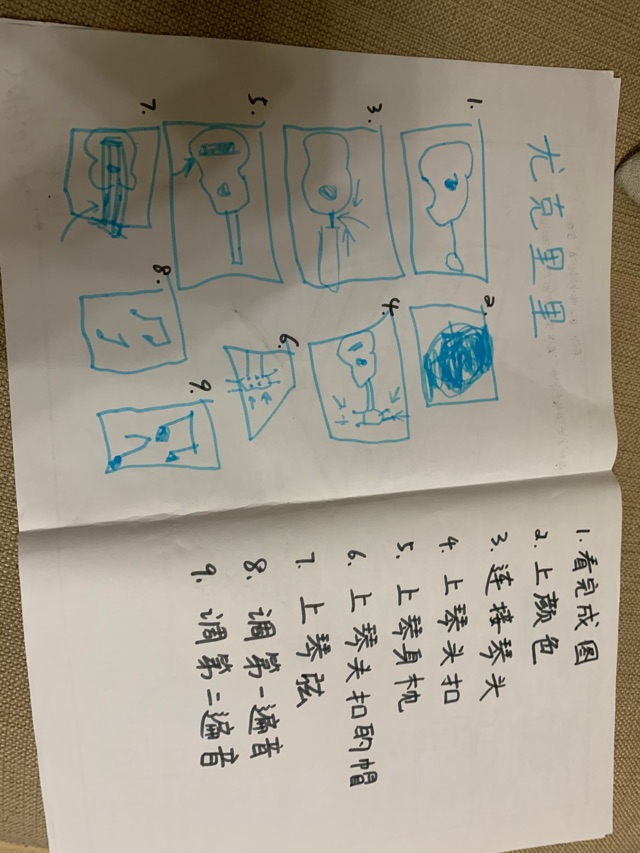 尤克里里
1.
2.
3.
4.
5.
6.
7.
8.
9.
1. 看完成图
2. 上颜色
3. 连接琴头
4. 上琴头扣
5. 上琴身枕
6. 上琴头扣的帽
7. 上琴弦
8. 调第一遍音
9. 调第二遍音